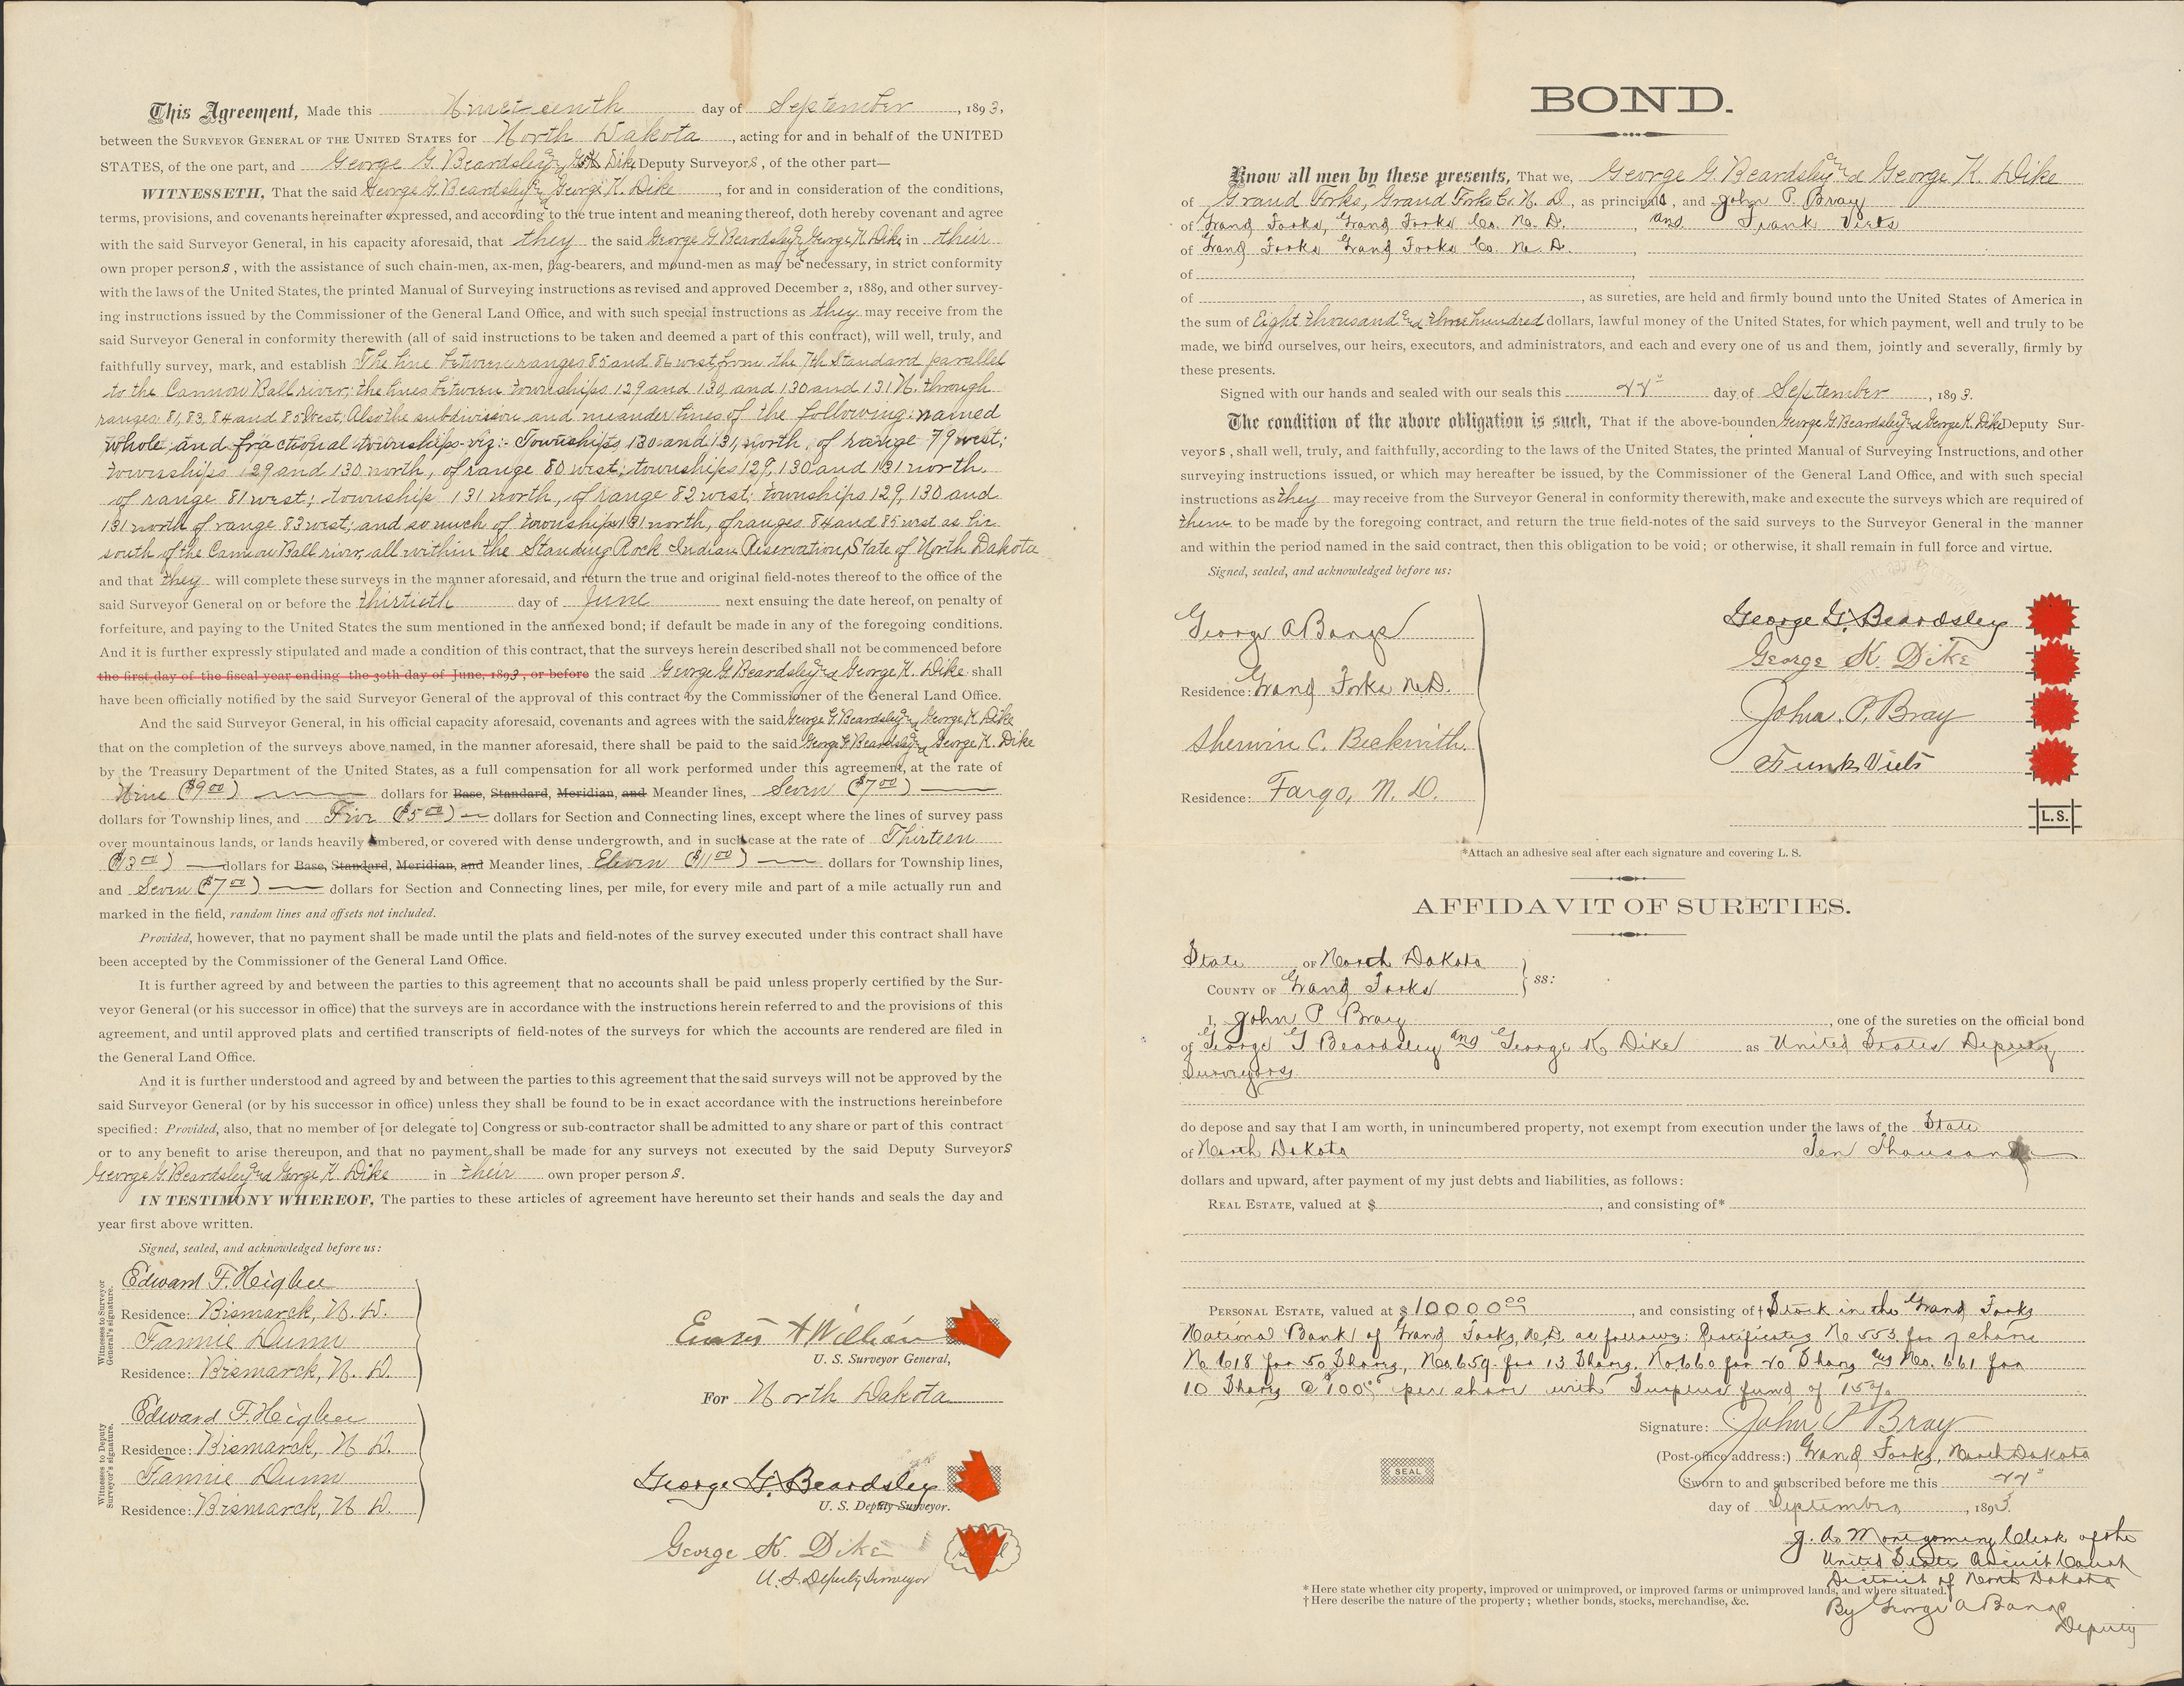 This Agreement, Made this Nineteenth day of September, 1893,
between the SURVEYOR GENERAL OF THE UNITED STATES for North Dakota, acting for and in behalf of the UNITED
STATES, of the one part, and George G. Beardsley and G. K. Dike Deputy Surveyors, of the other part—
WITNESSETH, That the said George G. Beardsley and George K. Dike, for and in consideration of the conditions,
terms, provisions, and covenants hereinafter expressed, and according to the true intent and meaning thereof, doth hereby covenant and agree
with the said Surveyor General, in his capacity aforesaid, that they the said George G Beardsley and George K Dike in their
own proper persons, with the assistance of such chain-men, ax-men, flag-bearers, and mound-men as may be necessary, in strict conformity
with the laws of the United States, the printed Manual of Surveying instructions as revised and approved December 2, 1889, and other survey-
ing instructions issued by the Commissioner of the General Land Office, and with such special instructions as they may receive from the
said Surveyor General in conformity therewith (all of said instructions to be taken and deemed a part of this contract), will well, truly, and
faithfully survey, mark, and establish The line between ranges 85 and 86 west, from the 7th Standard parallel
to the Cannon Ball river; the lines between townships 129 and 130, and 130 and 131 N. through
ranges 81, 83, 84 and 85 West; Also the subdivision and meander lines of the following named
whole and fractional townships viz:- Townships 130 and 131, north, of range 79 west;
townships 129 and 130 north, of range 80 west; townships 129, 130 and 131 north,
of range 81 west; township 131 north, of range 82 west; townships 129, 130 and
131 north of range 83 west; and so much of townships 131 north, of ranges 84 and 85 west as lie
south of the Cannon Ball river, all within the Standing Rock Indian Reservation, State of North Dakota
and that they will complete these surveys in the manner aforesaid, and return the true and original field-notes thereof to the office of the
said Surveyor General on or before the thirtieth day of June next ensuing the date hereof, on penalty of
forfeiture, and paying to the United States the sum mentioned in the annexed bond; if default be made in any of the foregoing conditions.
And it is further expressly stipulated and made a condition of this contract, that the surveys herein described shall not be commenced before
the first day of the fiscal year ending the 30th day of June, 1893, or before the said George G Beardsley and George K. Dike shall
have been officially notified by the said Surveyor General of the approval of this contract by the Commissioner of the General Land Office.
And the said Surveyor General, in his official capacity aforesaid, covenants and agrees with the said George G. Beardsley and George K Dike
that on the completion of the surveys above named, in the manner aforesaid, there shall be paid to the said George G Beardsley and George K. Dike
by the Treasury Department of the United States, as a full compensation for all work performed under this agreement, at the rate of
Nine ($9.00) dollars for Base, Standard, Meridian, and Meander lines, Seven ($7.00)
dollars for Township lines, and Five ($5.00) dollars for Section and Connecting lines, except where the lines of survey pass
over mountainous lands, or lands heavily timbered, or covered with dense undergrowth, and in such case at the rate of Thirteen
($13.00) dollars for Base, Standard, Meridian, and Meander lines, Eleven ($11.00) dollars for Township lines,
and Seven ($7.00) dollars for Section and Connecting lines, per mile, for every mile and part of a mile actually run and
marked in the field, random lines and offsets not included.
Provided, however, that no payment shall be made until the plats and field-notes of the survey executed under this contract shall have
been accepted by the Commissioner of the General Land Office.
It is further agreed by and between the parties to this agreement that no accounts shall be paid unless properly certified by the Sur-
veyor General (or his successor in office) that the surveys are in accordance with the instructions herein referred to and the provisions of this
agreement, and until approved plats and certified transcripts of field-notes of the surveys for which the accounts are rendered are filed in
the General Land Office.
And it is further understood and agreed by and between the parties to this agreement that the said surveys will not be approved by the
said Surveyor General (or by his successor in office) unless they shall be found to be in exact accordance with the instructions hereinbefore
specified: Provided, also, that no member of [or delegate to] Congress or sub-contractor shall be admitted to any share or part of this contract
or to any benefit to arise thereupon, and that no payment shall be made for any surveys not executed by the said Deputy Surveyors
George G. Beardsley and George K Dike in their own proper persons.
IN TESTIMONY WHEREOF, The parties to these articles of agreement have hereunto set their hands and seals the day and
year first above written.
Signed, sealed, and acknowledged before us:
Witnesses to Surveyor General's signature.
Edward F. Higbee
Residence: Bismarck, N. D.
Fannie Dunn
Residence: Bismarck, N. D.
Witnesses to Deputy Surveyor's signature.
Edward F. Higbee
Residence: Bismarck, N. D.
Fannie Dunn
Residence: Bismarck, N D.
U. S. Surveyor General,
For North Dakota
George G. Beardsley
U. S. Deputy Surveyor.
George K. Dike
U. S. Deputy Surveyor
BOND.
Know all men by these presents, That we, George G. Beardsley and George K. Dike
of Grand Forks, Grand Forks Co. N. D, as principals, and John P. Bray
of Grand Forks, Grand Forks Co. No. D., and Frank Viets
of Grand Forks Grand Forks Co. No. D.,
of
of , as sureties, are held and firmly bound unto the United States of America in
the sum of Eight thousand and three hundred dollars, lawful money of the United States, for which payment, well and truly to be
made, we bind ourselves, our heirs, executors, and administrators, and each and every one of us and them, jointly and severally, firmly by
these presents.
Signed with our hands and sealed with our seals this 22" day of September, 1893.
The condition of the above obligation is such, That if the above-bounden George G. Beardsley and George K. Dike Deputy Sur-
veyors, shall well, truly, and faithfully, according to the laws of the United States, the printed Manual of Surveying Instructions, and other
surveying instructions issued, or which may hereafter be issued, by the Commissioner of the General Land Office, and with such special
instructions as they may receive from the Surveyor General in conformity therewith, make and execute the surveys which are required of
them to be made by the foregoing contract, and return the true field-notes of the said surveys to the Surveyor General in the manner
and within the period named in the said contract, then this obligation to be void; or otherwise, it shall remain in full force and virtue.
Signed, sealed, and acknowledged before us:
George A Bangs
Residence: Grand Forks N.D.
Sherwin C. Beckwith.
Residence: Fargo, N. D.
George G. Beardsley
George K. Dike
John. P. Bray
Frank Viets
L.S.
*Attach an adhesive seal after each signature and covering L. S.
AFFIDAVIT OF SURETIES.
State OF North Dakota
COUNTY OF Grand Forks ss:
I, John P Bray, one of the sureties on the official bond
of George G Beardsley and George K Dike as United States Deputy
Surveyors
do depose and say that I am worth, in unincumbered property, not exempt from execution under the laws of the State
of North Dakota Ten Thousand
dollars and upward, after payment of my just debts and liabilities, as follows:
REAL ESTATE, valued at $ , and consisting of*
PERSONAL ESTATE, valued at $10000.00, and consisting of† Stock in the Grand Forks
National Bank of Grand Forks, N.D. as follows: Certificates No 553 for 7 share
No 618 for 50 Shares, No. 659 for 13 Shares. No 660 for 20 Shares and No. 661 for
10 Shares @ $100.00 per share with Surplus fund of 15%
Signature: John P Bray
(Post-office address:) Grand Forks, North Dakota
Sworn to and subscribed before me this 22"
day of September, 1893.
SEAL
J. A. Montgomery Clerk of the
United States Circuit Court
District of North Dakota
By George A Bangs
Deputy
* Here state whether city property, improved or unimproved, or improved farms or unimproved lands, and where situated.
† Here describe the nature of the property; whether bonds, stocks, merchandise, &c.